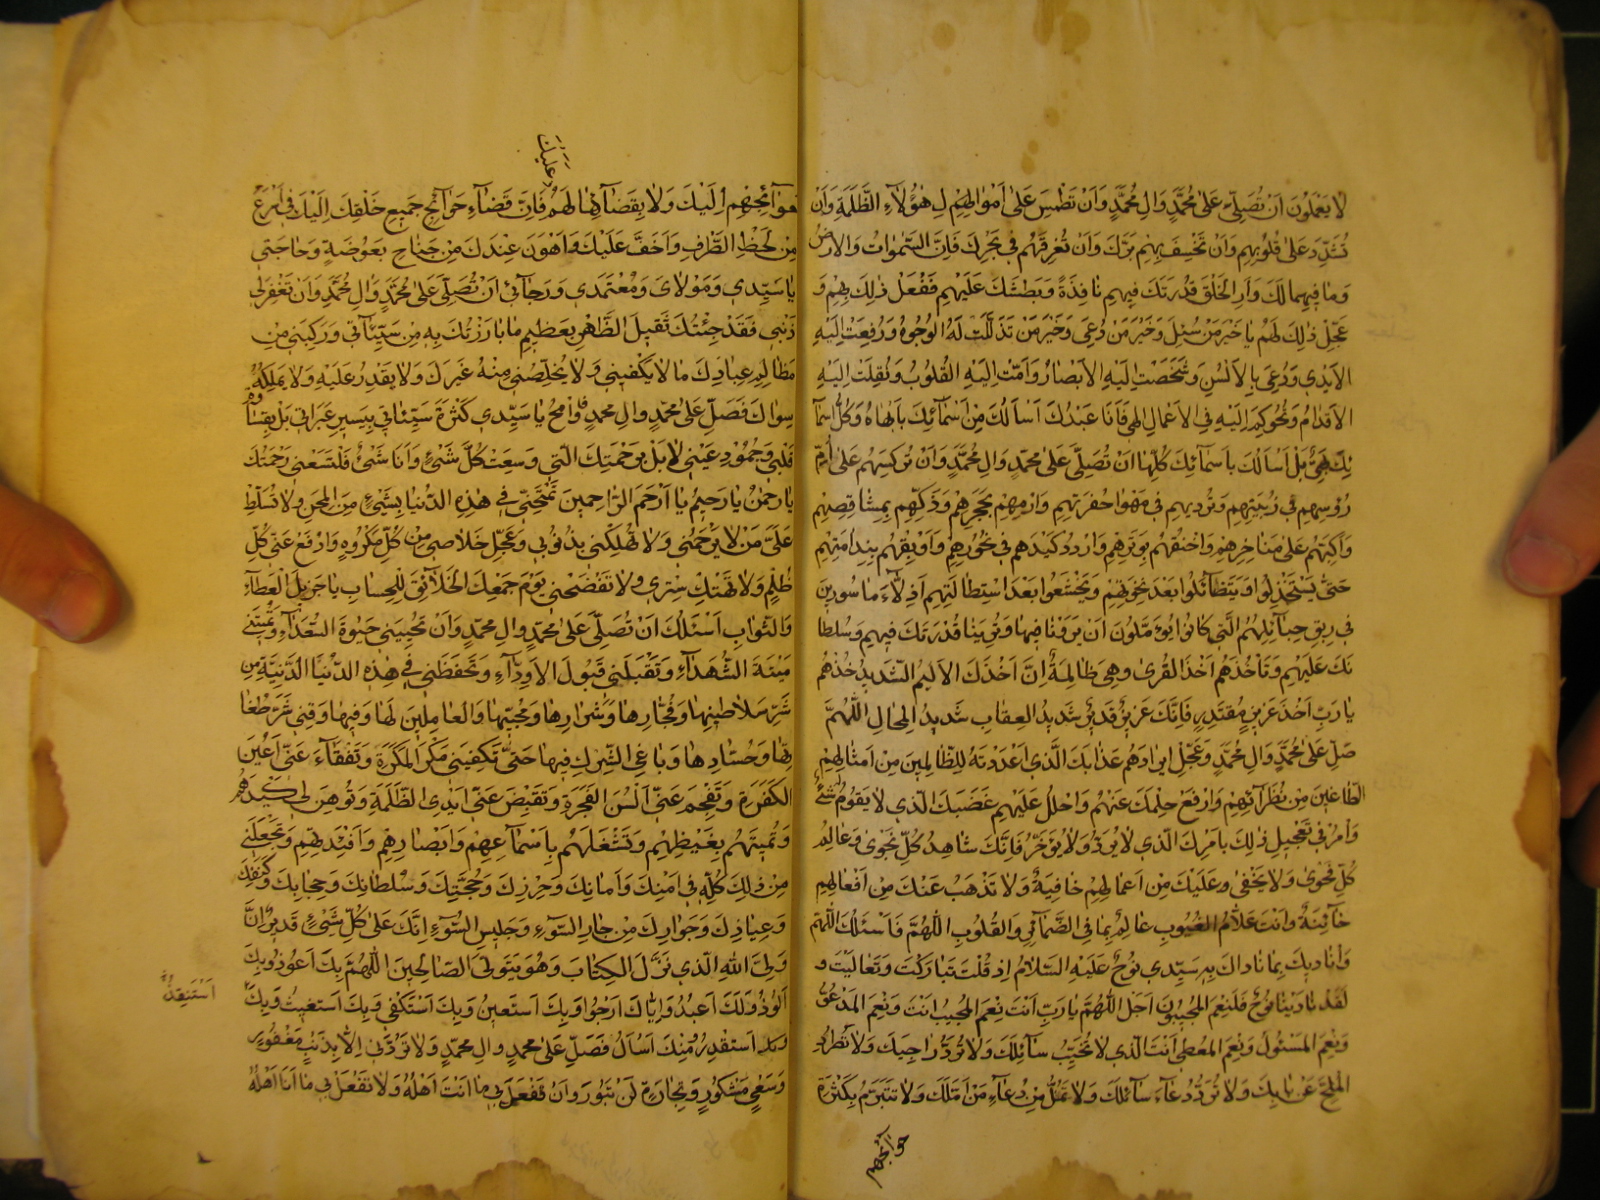 لا يَعْمَلُونَ اَنْ تُصَلِّيَ عَلىٰ مُحَمَّدٍ وَالِ مُحَمَّدٍ وَاَنْ تَطْمِسَ عَلىٰ اَمْوَالِهِمْ لِ هٰؤُلآءِ الظَّلَمَةِ وَاَنْ
تُشَدِّدَ عَلىٰ قُلُوبِهِمْ وَاَنْ تَخْسِفَ بِهِمْ بَرَّكَ وَاَنْ تُغْرِقَهُمْ فِي بَحْرِكَ فَاِنَّ السَّمٰوَاتِ وَالاَرْضَ
وَمَا فِيهِمَا لَكَ وَاَرِ الْخَلْقَ قُدْرَتَكَ فِيهِمْ نَافِذَةً وَبَطْشَكَ عَلَيْهِمْ فَفْعَلْ ذٰلِكَ بِهِمْ وَ
عَجِّلْ ذٰلِكَ لَهُمْ يَا خَيْرَ مَنْ سُئِلَ وَخَيْرَ مَنْ دُعِيَ وَخَيْرَ مَنْ تَذَلَّلَتْ لَهُ الْوُجُوهُ وَرُفِعَتْ اِلَيْهِ
الاَيْدِي وَدُعِيَ بِالاَلْسُنِ وَشَخَصَتْ اِلَيْهِ الاَبْصَارُ وَاَمَّتْ اِلَيْهِ الْقُلُوبُ وَنُقِلَتْ اِلَيْهِ
الاَقْدَامُ وَتُحُوكِمَ اِلَيْهِ فِي الاَعْمَالِ اِلٰهِي فَاَنَا عَبْدُكَ اَسْاَلُكَ مِنْ اَسْمَائِكَ بِاَبْهَاهُ وَكُلُّ اَسْمَآ
ئِكَ بَهِيٌّ بَلْ اَسْاَلُكَ بِاَسْمَآئِكَ كُلِّهَا اَنْ تُصَلِّيَ عَلىٰ مُحَمَّدٍ وَالِ مُحَمَّدٍ وَاَنْ تُرْكِسَهُمْ عَلىٰ اُمِّ
رُؤُسِهِمْ فِي زُبْيَتِهِمْ وَتُرْدِيهِمْ فِي مَهْوٰا حُفْرَتِهِمْ وَارْمِهِمْ بِحَجَرِهِمْ وَذَكِّهِمْ بِمِشَاقِصِهِمْ
وَاكْبُبْهُمْ عَلىٰ مَنَاخِرِهِمْ وَاخْنُقْهُمْ بِوَتَرِهِمْ وَارْدُدْ كَيْدَهُمْ فِي نُحُورِهِمْ وَاَوْبِقْهُمْ بِنِدَامَتِهِمْ
حَتّىٰ يَسْتَخْذِلُوا وَيَتَضَآئَلُوا بَعْدَ نِخْوَتِهِمْ وَيَخْشَعُوا بَعْدَ اسْتِطَالَتِهِمْ اَذِلّآءَ مَاسُورِينَ
فِي رِبَقِ حِبَآئِلِهِمُ الَّتِي كَانُوا يُؤَمِّلُونَ اَنْ يَرَوْنَا فِيهَا وَتُرِيَنَا قُدْرَتَكَ فِيهِمْ وَسُلْطَا
نَكَ عَلَيْهِمْ وَتَأْخُذَهُمْ اَخْذَ الْقُرىٰ وَهِيَ ظَالِمَةٌ اِنَّ اَخْذَكَ الاَلِيمُ الشَّدِيدُ خُذْهُمْ
يَا رَبِّ اَخْذَ عَزِيزٍ مُقْتَدِرٍ فَاِنَّكَ عَزِيزٌ قَدِيرٌ شَدِيدُ الْعِقَابِ شَدِيدُ الْمِحَالِ اَللّٰهُمَّ
صَلِّ عَلىٰ مُحَمَّدٍ وَالِ مُحَمَّدٍ وَعَجِّلْ اِيرَادَهُمْ عَذَابَكَ الَّذِي اَعْدَدْتَهُ لِلظَّالِمِينَ مِنْ اَمْثَالِهِمْ
الطَّاغِينَ مِنْ نُظَرَآئِهِمْ وَارْفَعْ حِلْمَكَ عَنْهُمْ وَاحْلُلْ عَلَيْهِمْ غَضَبَكَ الَّذِي لا يَقُومُ شَيْءٌ
وَأْمُرْ فِي تَعْجِيلِ ذٰلِكَ بِاَمْرِكَ الَّذِي لا يُرَدُّ وَلا يُؤَخَّرُ فَاِنَّكَ شَاهِدُ كُلِّ نَجْوىٰ وَعَالِمُ
كُلِّ فَحْوىٰ وَلا يَخْفىٰ عَلَيْكَ مِنْ اَعْمَالِهِمْ خَافِيَةٌ وَلا تَذْهَبُ عَنْكَ مِنْ اَفْعَالِهِمْ
خَآئِنَةٌ وَاَنْتَ عَلاّمُ الْغُيُوبِ عَالِمٌ بِمَا فِي الضَّمَآئِرِ وَالْقُلُوبِ اَللّٰهُمَّ فَاَسْئَلُكَ اللّٰهُمَّ
وَاُنَادِيكَ بِمَا نَادَاكَ بِهِ سَيِّدِي نُوحٌ عَلَيْهِ السَّلامُ اِذْ قُلْتَ تَبَارَكْتَ وَتَعَالَيْتَ وَ
لَقَدْ نَادَيٰنَا نُوحٌ فَلَنِعْمَ الْمُجِيبُونَ اَجَلْ اَللّٰهُمَّ يَا رَبِّ اَنْتَ نِعْمَ الْمُجِيبُ اَنْتَ وَنِعْمَ الْمَدْعُوُّ
وَنِعْمَ الْمَسْئُولُ وَنِعْمَ الْمُعْطِي اَنْتَ الَّذِي لا تُخَيِّبُ سَآئِلَكَ وَلا تَرُدُّ رَاجِيَكَ وَلا تَطْرُدُ
الْمُلِحَّ عَنْ بَابِكَ وَلا تَرُدُّ دُعَآءَ سَآئِلِكَ وَلا تَمُلُّ مِنْ دُعَآءِ مَنْ اَمَّلَكَ وَلا تَتَبَرَّمُ بِكَثْرَةِ
حوآئجهم
وَعَلَيْكَ
حَوَآئِجِهِمْ اِلَيْكَ وَلا بِقَضَآئِهَا لَهُمْ فَاِنَّ قَضَآءَ حَوَآئِجِ جَمِيعِ خَلْقِكَ اِلَيْكَ فِي اَسْرَعِ
مِنْ لَحْظِ الطَّرْفِ وَاَخَفُّ عَلَيْكَ وَاَهْوَنُ عِنْدَكَ مِنْ جَنَاحِ بَعُوضَةٍ وَحَاجَتِي
يَا سَيِّدِي وَمَوْلاىَ وَمُعْتَمَدِي وَرَجَآئِي اَنْ تُصَلِّيَ عَلىٰ مُحَمَّدٍ وَالِ مُحَمَّدٍ وَاَنْ تَغْفِرَ لِي
ذَنْبِي فَقَدْ جِئْتُكَ ثَقِيلَ الظَّهْرِ بِعَظِيمِ مَا بَارَزْتُكَ بِهِ مِنْ سَيِّئَاتِي وَرَكِبَنِي مِنْ
مَظَالِمِ عِبَادِكَ مَا لا يَكْفِينِي وَلا يُخَلِّصُنِي مِنْهُ غَيْرُكَ وَلا يَقْدِرُ عَلَيْهِ وَلا يَمْلِكُهُ
سِوَاكَ فَصَلِّ عَلىٰ مُحَمَّدٍ وَالِ مُحَمَّدٍ وَامْحُ يَا سَيِّدِي كَثْرَةَ سَيِّئَاتِي بِيَسِيرِ عَبَرَاتِي بَلْ بِقَسَاوَةِ
قَلْبِي وَجُمُودِ عَيْنِي لا بَلْ بِرَحْمَتِكَ الَّتِي وَسِعَتْ كُلَّ شَيْءٍ وَاَنَا شَيْءٌ فَلْتَسَعْنِي رَحْمَتُكَ
يَا رَحْمٰنُ يَا رَحِيمُ يَا اَرْحَمَ الرَّاحِمِينَ تَمْتَحِنِّي فِي هٰذِهِ الدُّنْيَا بِشَيْءٍ مِنَ الْمِحَنِ وَلا تُسَلِّطْ
عَلَيَّ مَنْ لا يَرْحَمُنِي وَلا تُهْلِكْنِي بِذُنُوبِي وَعَجِّلْ خَلاصِي مِنْ كُلِّ مَكْرُوهٍ وَادْفَعْ عَنِّي كُلَّ
ظُلْمٍ وَلا تَهْتِكْ سِتْرِي وَلا تَفْضَحْنِي يَوْمَ جَمْعِكَ الْخَلآئِقَ لِلْحِسَابِ يَا جَزِيلَ الْعَطَآءِ
وَالثَّوَابِ اَسْئَلُكَ اَنْ تُصَلِّيَ عَلىٰ مُحَمَّدٍ وَالِ مُحَمَّدٍ وَاَنْ تُحْيِيَنِي حَيٰوةَ السُّعَدَآءِ وَتُمِيتَنِي
مِيتَةَ الشُّهَدَآءِ وَتَقْبَلَنِي قَبُولَ الاَوِدَّآءِ وَتَحْفَظَنِي فِي هٰذِهِ الدُّنْيَا الدَّنِيَّةِ مِنْ
شَرِّ سَلاطِينِهَا وَفُجَّارِهَا وَشِرَارِهَا وَمُحِبِّيهَا وَالْعَامِلِينَ لَهَا وَفِيهَا وَقِنِي شَرَّ طُغَا
تِهَا وَحُسَّادِهَا وَبَاغِي الشِّرْكِ فِيهَا حَتّىٰ تَكْفِيَنِي مَكْرَ الْمَكَرَةِ وَتَفْقَاَءَ عَنِّي اَعْيُنَ
الْكَفَرَةِ وَتُفْحِمَ عَنِّي اَلْسُنَ الْفَجَرَةِ وَتَقْبِضَ عَنِّي اَيْدِيَ الظَّلَمَةِ وَتُوهِنَ لِي كَيْدَهُمْ
وَتُمِيتَهُمْ بِغَيْظِهِمْ وَتَشْغَلَهُمْ بِاَسْمَاعِهِمْ وَاَبْصَارِهِمْ وَاَفْئِدَتِهِمْ وَتَجْعَلَنِي
مِنْ ذٰلِكَ كُلِّهِ فِي اَمْنِكَ وَاَمَانِكَ وَحِرْزِكَ وَحُجَّتِكَ وَسُلْطَانِكَ وَحِجَابِكَ وَكَنَفِكَ
وَعِيَاذِكَ وَجَوَارِكَ مِنْ جَارِ السَّوْءِ وَجَلِيسِ السَّوْءِ اِنَّكَ عَلىٰ كُلِّ شَيْءٍ قَدِيرٌ اِنَّ
وَلِيِّيَ اللّٰهُ الَّذِي نَزَّلَ الْكِتَابَ وَهُوَ يَتَوَلَّى الصَّالِحِينَ اَللّٰهُمَّ بِكَ اَعُوذُ وَبِكَ
اَلُوذُ وَلَكَ اَعْبُدُ وَاِيَّاكَ اَرْجُوا وَبِكَ اَسْتَعِينُ وَبِكَ اَسْتَكْفِي وَبِكَ اَسْتَغِيثُ وَبِكَ
اَسْتَنْقِذُ
وَبِكَ اَسْتَقْدِرُ وَمِنْكَ اَسْاَلُ فَصَلِّ عَلىٰ مُحَمَّدٍ وَالِ مُحَمَّدٍ وَلا تَرُدَّنِي اِلاّ بِذَنْبٍ مَغْفُورٍ
وَسَعْيٍ مَشْكُورٍ وَتِجَارَةٍ لَنْ تَبُورَ وَاَنْ تَفْعَلَ بِي مَا اَنْتَ اَهْلُهُ وَلا تَفْعَلَ بِي مَا اَنَا اَهْلُهُ